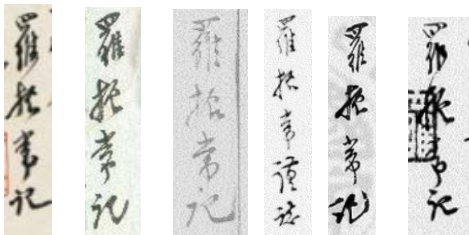 羅振常記
羅振常記
羅振常記
羅振常謹誌
羅振常記
羅振常記